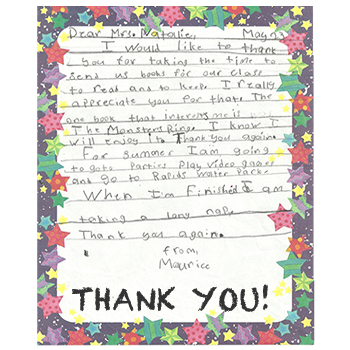 Dear Mrs. Natalie, May 23
I would like to thank
you for taking the time to
send us books for our class
to read and to keep. I really
appreciate you for that. The
one book that interests me is
The Monsters Ring. I know I
will enjoy it. Thank you again.
For Summer I am going
to goto Parties Play Video games
and go to Rapids Water Park.
When I'm Finished I am
taking a long nap.
Thank you again.
from,
Maurice
THANK YOU!